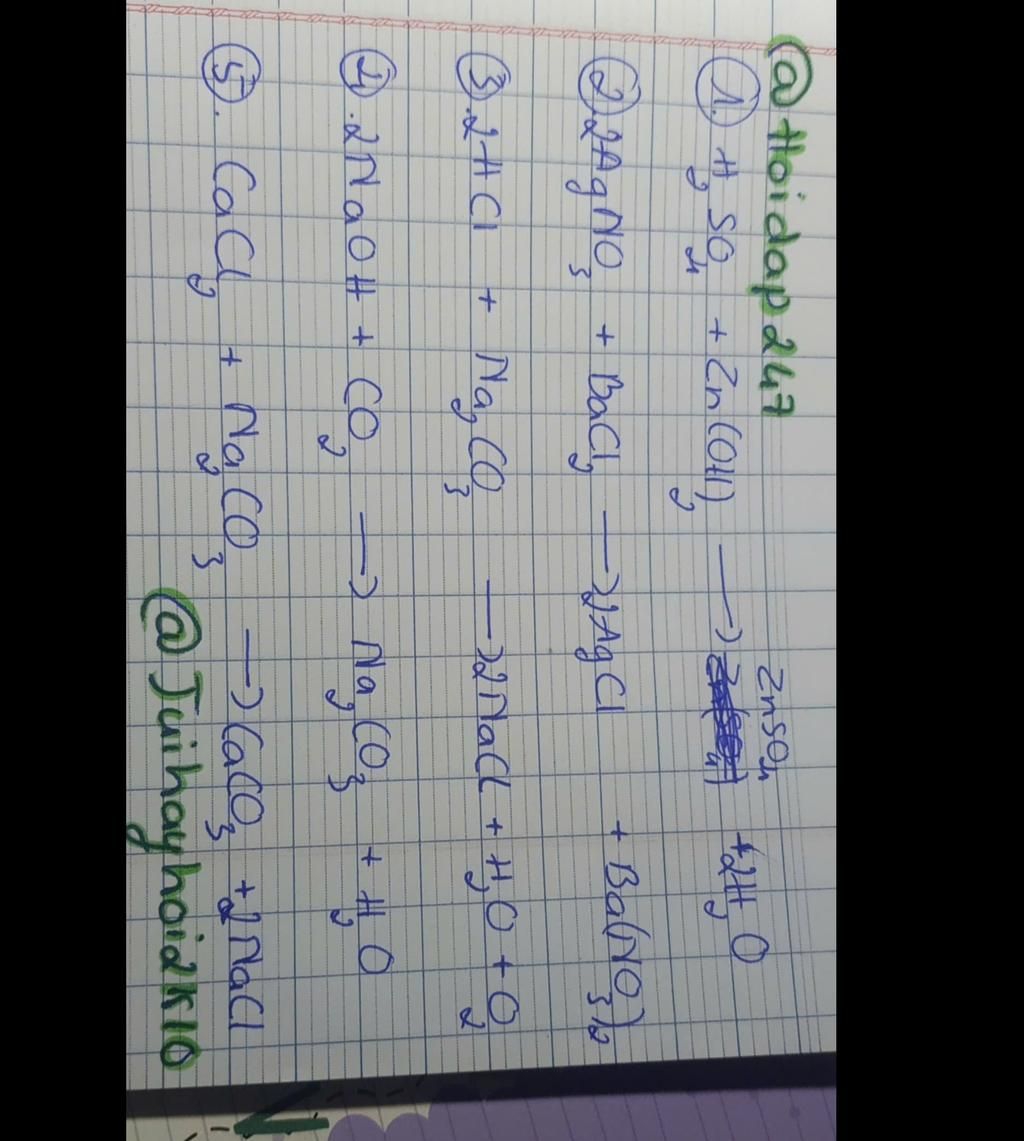 @Hoidap247
①. H₂SO₄ + Zn(OH)₂ → ZnSO₄ + 2H₂O
②. 2AgNO₃ + BaCl₂ → 2AgCl + Ba(NO₃)₂
③. 2HCl + Na₂CO₃ → 2NaCl + H₂O + O₂
④. 2NaOH + CO₂ → Na₂CO₃ + H₂O
⑤. CaCl₂ + Na₂CO₃ → CaCO₃ + 2NaCl
@Tuihayhoi2K10